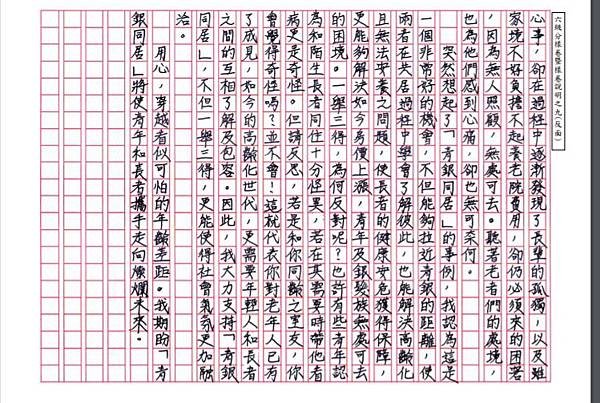 六級分樣卷暨樣卷說明之九(反面)
心事，卻在過程中逐漸發現了長輩的孤獨，以及雖
家境不好負擔不起養老院費用，卻仍必須來的困苦
，因為無人照顧，無處可去。聽著老者們的處境，
也為他們感到心痛，卻也無可奈何。
突然想起了「青銀同居」的事例，我認為這是
一個非常好的機會，不但能夠拉近青銀的距離，使
兩者在共居過程中學會了解彼此，也能解決高齡化
且無法安養之問題，使長者的健康安危獲得保障，
更能夠解決如今房價上漲，青年及銀髮族無處可去
的困境。一舉三得，為何反對呢？也許有些青年認
為和陌生長者同住十分怪異，若在其需要時帶他看
病更是奇怪。但請反思，若是和你同齡之室友，你
會覺得奇怪嗎？並不會！這就代表你對老年人已有
了成見，如今的高齡化世代，更需要年輕人和長者
之間的互相了解及包容。因此，我大力支持「青銀
同居」，不但一舉三得，更能使得社會氣氛更加融
洽。
用心，穿越看似可怕的年齡差距。我期盼「青
銀同居」將使青年和長者攜手走向燦爛未來。